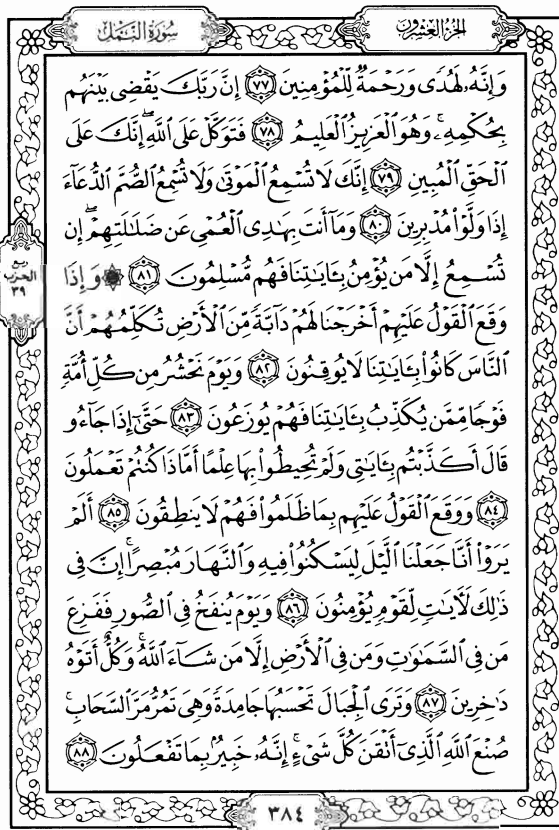 الجزء العشرون
سورة النمل
وَإِنَّهُۥ لَهُدٗى وَرَحۡمَةٞ لِّلۡمُؤۡمِنِينَ ٧٧ إِنَّ رَبَّكَ يَقۡضِي بَيۡنَهُم
بِحُكۡمِهِۦۚ وَهُوَ ٱلۡعَزِيزُ ٱلۡعَلِيمُ ٧٨ فَتَوَكَّلۡ عَلَى ٱللَّهِۖ إِنَّكَ عَلَى
ٱلۡحَقِّ ٱلۡمُبِينِ ٧٩ إِنَّكَ لَا تُسۡمِعُ ٱلۡمَوۡتَىٰ وَلَا تُسۡمِعُ ٱلصُّمَّ ٱلدُّعَآءَ
إِذَا وَلَّوۡاْ مُدۡبِرِينَ ٨٠ وَمَآ أَنتَ بِهَٰدِي ٱلۡعُمۡيِ عَن ضَلَٰلَتِهِمۡۖ إِن
تُسۡمِعُ إِلَّا مَن يُؤۡمِنُ بِـَٔايَٰتِنَا فَهُم مُّسۡلِمُونَ ٨١ ۞ وَإِذَا
وَقَعَ ٱلۡقَوۡلُ عَلَيۡهِمۡ أَخۡرَجۡنَا لَهُمۡ دَآبَّةٗ مِّنَ ٱلۡأَرۡضِ تُكَلِّمُهُمۡ أَنَّ
ٱلنَّاسَ كَانُواْ بِـَٔايَٰتِنَا لَا يُوقِنُونَ ٨٢ وَيَوۡمَ نَحۡشُرُ مِن كُلِّ أُمَّةٖ
فَوۡجٗا مِّمَّن يُكَذِّبُ بِـَٔايَٰتِنَا فَهُمۡ يُوزَعُونَ ٨٣ حَتَّىٰٓ إِذَا جَآءُو
قَالَ أَكَذَّبۡتُم بِـَٔايَٰتِي وَلَمۡ تُحِيطُواْ بِهَا عِلۡمًا أَمَّاذَا كُنتُمۡ تَعۡمَلُونَ
٨٤ وَوَقَعَ ٱلۡقَوۡلُ عَلَيۡهِم بِمَا ظَلَمُواْ فَهُمۡ لَا يَنطِقُونَ ٨٥ أَلَمۡ
يَرَوۡاْ أَنَّا جَعَلۡنَا ٱلَّيۡلَ لِيَسۡكُنُواْ فِيهِ وَٱلنَّهَارَ مُبۡصِرًاۚ إِنَّ فِي
ذَٰلِكَ لَأٓيَٰتٖ لِّقَوۡمٖ يُؤۡمِنُونَ ٨٦ وَيَوۡمَ يُنفَخُ فِي ٱلصُّورِ فَفَزِعَ
مَن فِي ٱلسَّمَٰوَٰتِ وَمَن فِي ٱلۡأَرۡضِ إِلَّا مَن شَآءَ ٱللَّهُۚ وَكُلٌّ أَتَوۡهُ
دَٰخِرِينَ ٨٧ وَتَرَى ٱلۡجِبَالَ تَحۡسَبُهَا جَامِدَةٗ وَهِيَ تَمُرُّ مَرَّ ٱلسَّحَابِۚ
صُنۡعَ ٱللَّهِ ٱلَّذِيٓ أَتۡقَنَ كُلَّ شَيۡءٍۚ إِنَّهُۥ خَبِيرُۢ بِمَا تَفۡعَلُونَ ٨٨
ربع
الحزب
٣٩
٣٨٤